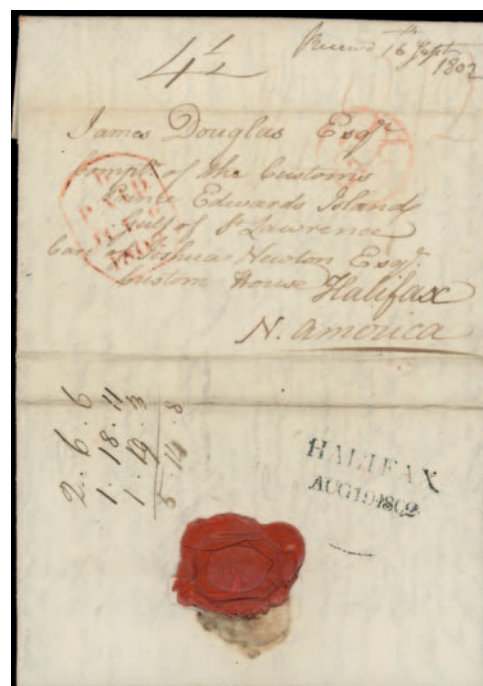 Received 16th Sept
1802
4 1/2
James Douglas Esqr
Comptr of the Customs
Prince Edwards Island
Gulf of St Lawrence
Care of Joshua Newton Esqr
Custom House Halifax
N. America
PAID
1802
2 . 6 . 6
1 . 18 . 11
1 . 19 . 3
5 . 14 . 8
HALIFAX
AUG 19 1802